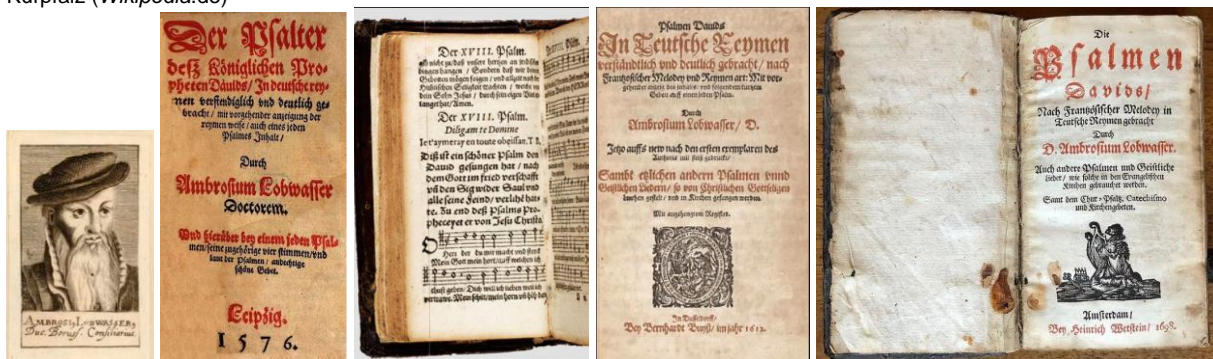 Kurpfalz (Wikipedia.de)
AMBROSI, LOBWASSER,
Duc. Boruss. Consiliarius.
Der Psalter
deß Königlichen Pro-
pheten Dauids/ In deutsche rey-
men verstendiglich vnd deutlich ge-
bracht/ mit vorgehender anzeigung der
reymen weise/ auch eines jeden
Psalmes Inhalt/
Durch
Ambrosium Lobwasser
Doctorem.
Vnd hierüber bey einem jeden Psal-
men/ seine zugehörige vier stimmen/ vnd
laut der Psalmen/ andechtige
schöne Gebet.
Leipzig.
1576.
Der XVIII. Psalm.
Der XVIII. Psalm.
Diligam te Domine
Je t'aymeray en toute obeissan. T. B.
Diß ist ein schöner Psalm den
Dauid gesungen hat/ nach
dem Gott im fried verschafft
vñ den Sig wider Saul vnd
alle seine Feind/ verlihē hat-
te. Zu end deß Psalms pro-
pheceyet er von Jesu Christo
Herr der du mir macht vnd sterck
Psalmen Dauids
In Teutsche Reymen
verständtlich vnd deutlich gebracht/ nach
Frantzösischer Melodey vnd Reymen art: Mit vor-
gehender anzeig des inhalts/ vnd folgendem kurtzem
Gebett auff einen jeden Psalm.
Durch
Ambrosium Lobwasser/ D.
Jetzo auffs new nach den ersten exemplaren des
Authoris mit fleiß gedruckt/
Sambt etlichen andern Psalmen vnnd
Geistlichen Liedern/ so von Christlichen Gottseligen
leuthen gestelt/ vnd in Kirchen gesungen werden.
Mit angehengtem Register.
In Düsseldorff/
Bey Bernhardt Buyß/ im jahr 1612.
Die
Psalmen
Davids/
Nach Frantzösischer Melodey in
Teutsche Reymen gebracht
Durch
D. Ambrosium Lobwasser.
Auch andere Psalmen und Geistliche
lieder/ wie solche in den Evangelischen
Kirchen gebrauchet werden.
Samt dem Chur-Pfaltz. Catechismo
und Kirchengebeten.
Amsterdam/
Bey Heinrich Wetstein/ 1698.